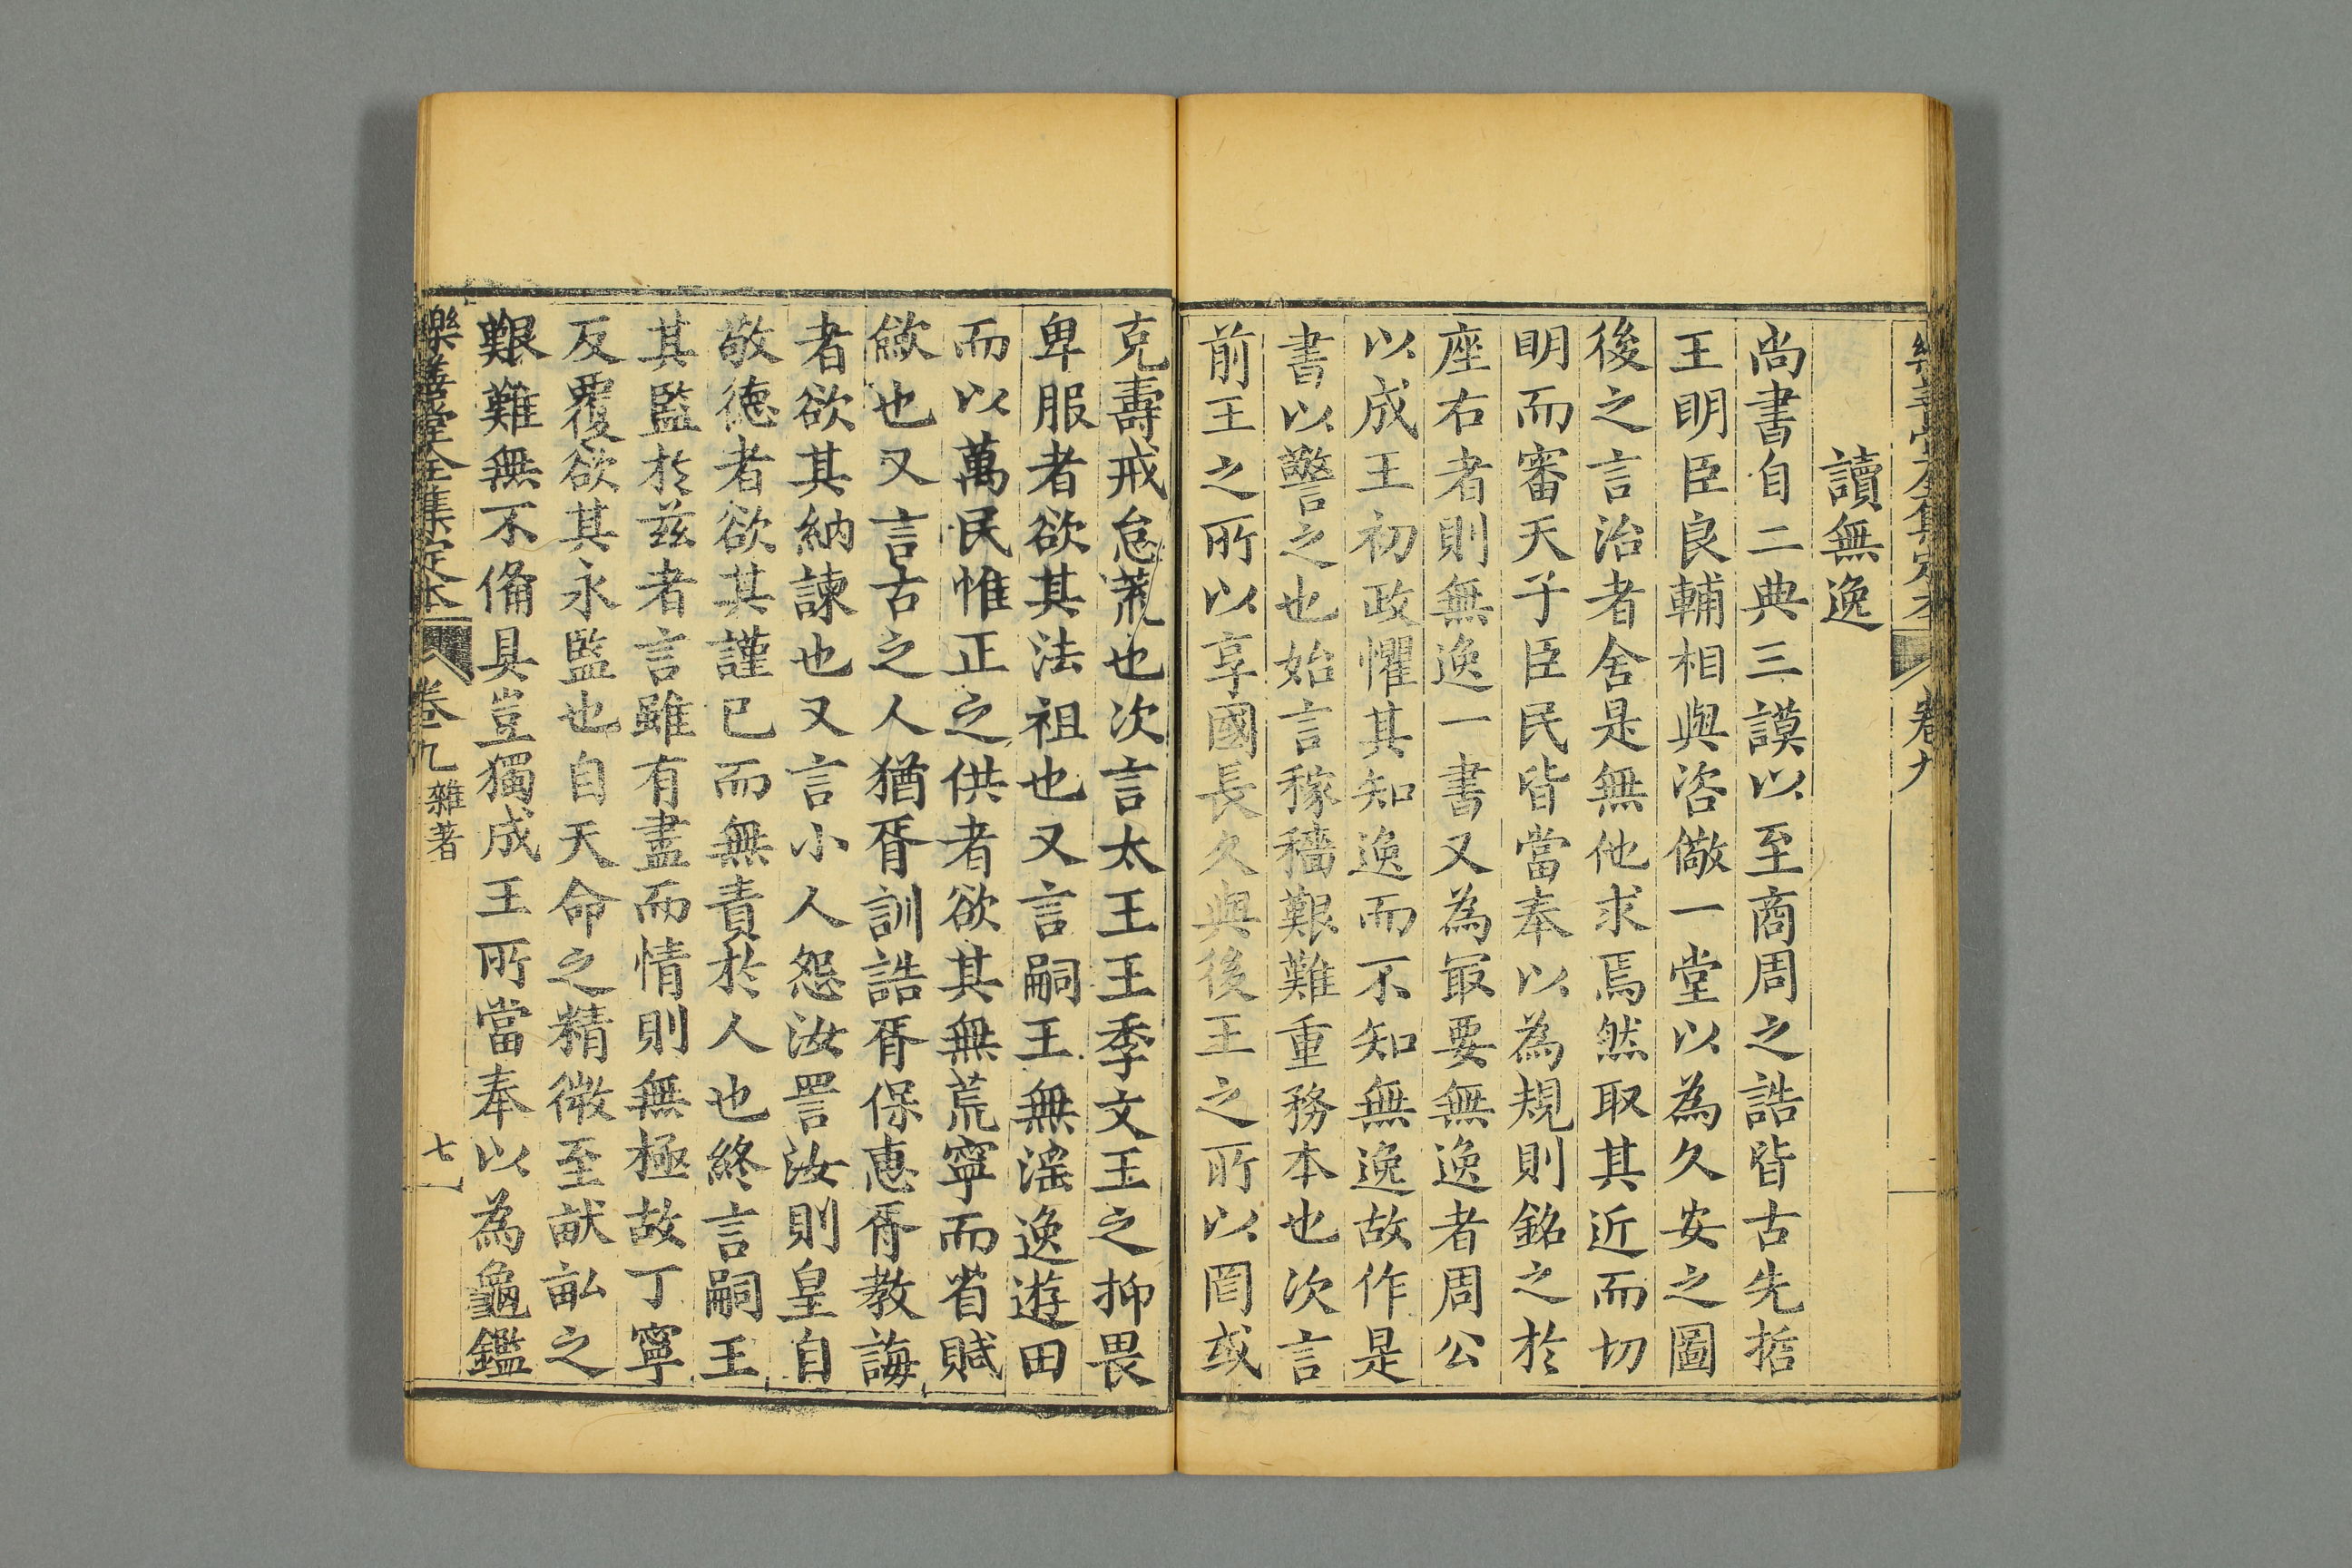 樂善堂全集定本
卷九
讀無逸
尚書自二典三謨以至商周之誥皆古先哲
王明臣良輔相與咨儆一堂以為久安之圖
後之言治者舍是無他求焉然取其近而切
明而審天子臣民皆當奉以為規則銘之於
座右者則無逸一書又為㝡要無逸者周公
以成王初政懼其知逸而不知無逸故作是
書以警之也始言稼穡艱難重務本也次言
前王之所以享國長久與後王之所以罔或
克壽戒怠荒也次言太王王季文王之抑畏
卑服者欲其法祖也又言嗣王無淫逸遊田
而以萬民惟正之供者欲其無荒寧而省賦
斂也又言古之人猶胥訓誥胥保惠胥教誨
者欲其納諫也又言小人怨汝詈汝則皇自
敬德者欲其謹已而無責於人也終言嗣王
其監於茲者言雖有盡而情則無極故丁寧
反覆欲其永監也自天命之精微至畎畝之
艱難無不備具豈獨成王所當奉以為龜鑑
樂善堂全集定本
卷九
雜著
七一